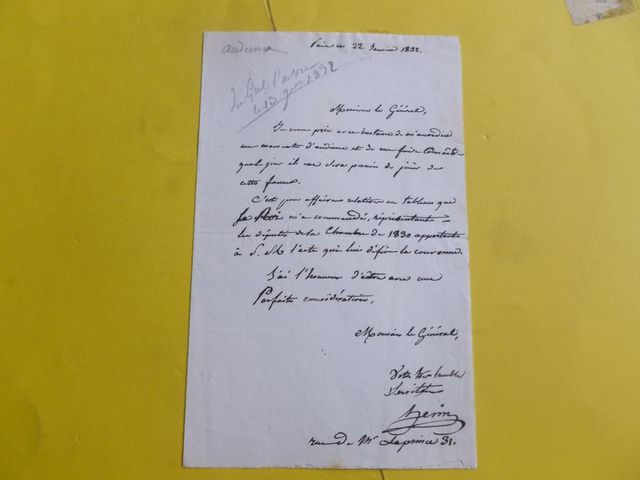 audience
Paris ce 22 Janvier 1832.
le Gal l'a vu
le 1832
Monsieur le Général,
Je vous prie avec instance de m'accorder
un moment d'audience et de me faire connaître
quel jour il me sera permis de jouir de
cette faveur.
C'est pour affaires relatives au tableau que
le Roi m'a commandé, représentant
les députés de la Chambre de 1830 apportants
à S. M. l'acte qui lui défère la couronne.
J'ai l'honneur d'être avec une
Parfaite considération,
Monsieur le Général,
Votre très humble
Serviteur
heim
rue de Mr Leprince 31.